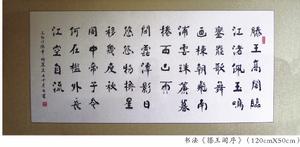 滕王高閣臨
江渚佩玉鳴
鑾罷歌舞
畫棟朝飛南
浦雲珠簾暮
捲西山雨
閒雲潭影日
悠悠物換星
移幾度秋
閣中帝子今
何在檻外長
江空自流
书法《滕王阁序》(120cmX50cm)